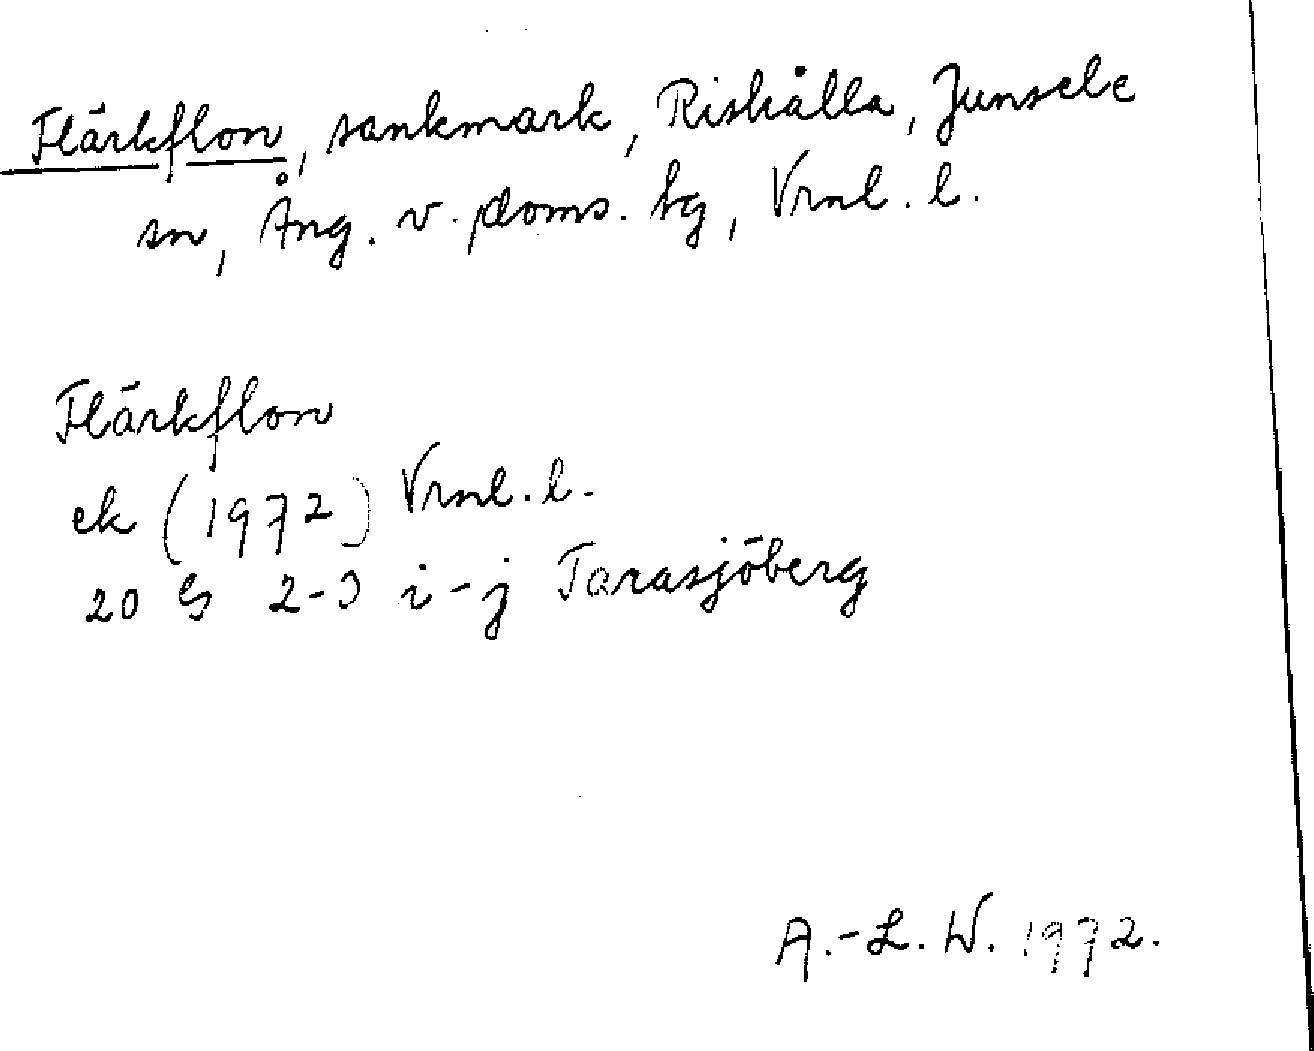 Flärkflon, sankmark, Riskålla, Junsele
sn, Ång. v. doms. hg, Vrnl. l.
Flärkflon
ek (1972) Vrnl. l.
20 G 2-3 i-j Tarasjöberg
A.-L. W. 1972.